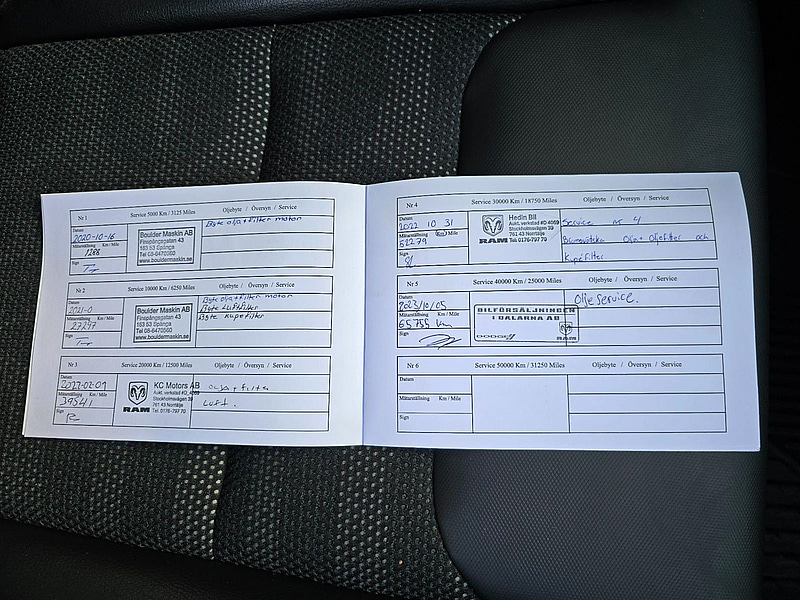 Nr 1 Service 5000 Km / 3125 Miles Oljebyte / Översyn / Service
Datum
2020-10-16
Mätarställning Km / Mile
1288
Sign
Boulder Maskin AB
Finspångsgatan 43
163 53 Spånga
Tel 08-6470560
www.bouldermaskin.se
Byte olja + filter motor
Nr 2 Service 10000 Km / 6250 Miles Oljebyte / Översyn / Service
Datum
2021-0
Mätarställning Km / Mile
27247
Sign
Boulder Maskin AB
Finspångsgatan 43
163 53 Spånga
Tel 08-6470560
www.bouldermaskin.se
Byte olja + filter motor
Byte luftfilter
Byte kupefilter
Nr 3 Service 20000 Km / 12500 Miles Oljebyte / Översyn / Service
Datum
2022-02-09
Mätarställning Km / Mile
39541
Sign
RAM
KC Motors AB
Aukt. verkstad #D_4069
Stockholmsvägen 39
761 43 Norrtälje
Tel. 0176-797 70
olja + filter
Luft.
Nr 4 Service 30000 Km / 18750 Miles Oljebyte / Översyn / Service
Datum
2022 10 31
Mätarställning Km / Mile
51279
Sign
RAM
Hedin Bil
Aukt. verkstad #D 4069
Stockholmsvägen 39
761 43 Norrtälje
Tel. 0176-797 70
Service nr 4
Bromsvätska Olja + Oljefilter och
Kupéfilter
Nr 5 Service 40000 Km / 25000 Miles Oljebyte / Översyn / Service
Datum
2023/10/05
Mätarställning Km / Mile
65755 km
Sign
BILFÖRSÄLJNINGEN
I DALARNA AB
DODGE
RAM
Oljeservice.
Nr 6 Service 50000 Km / 31250 Miles Oljebyte / Översyn / Service
Datum
Mätarställning Km / Mile
Sign